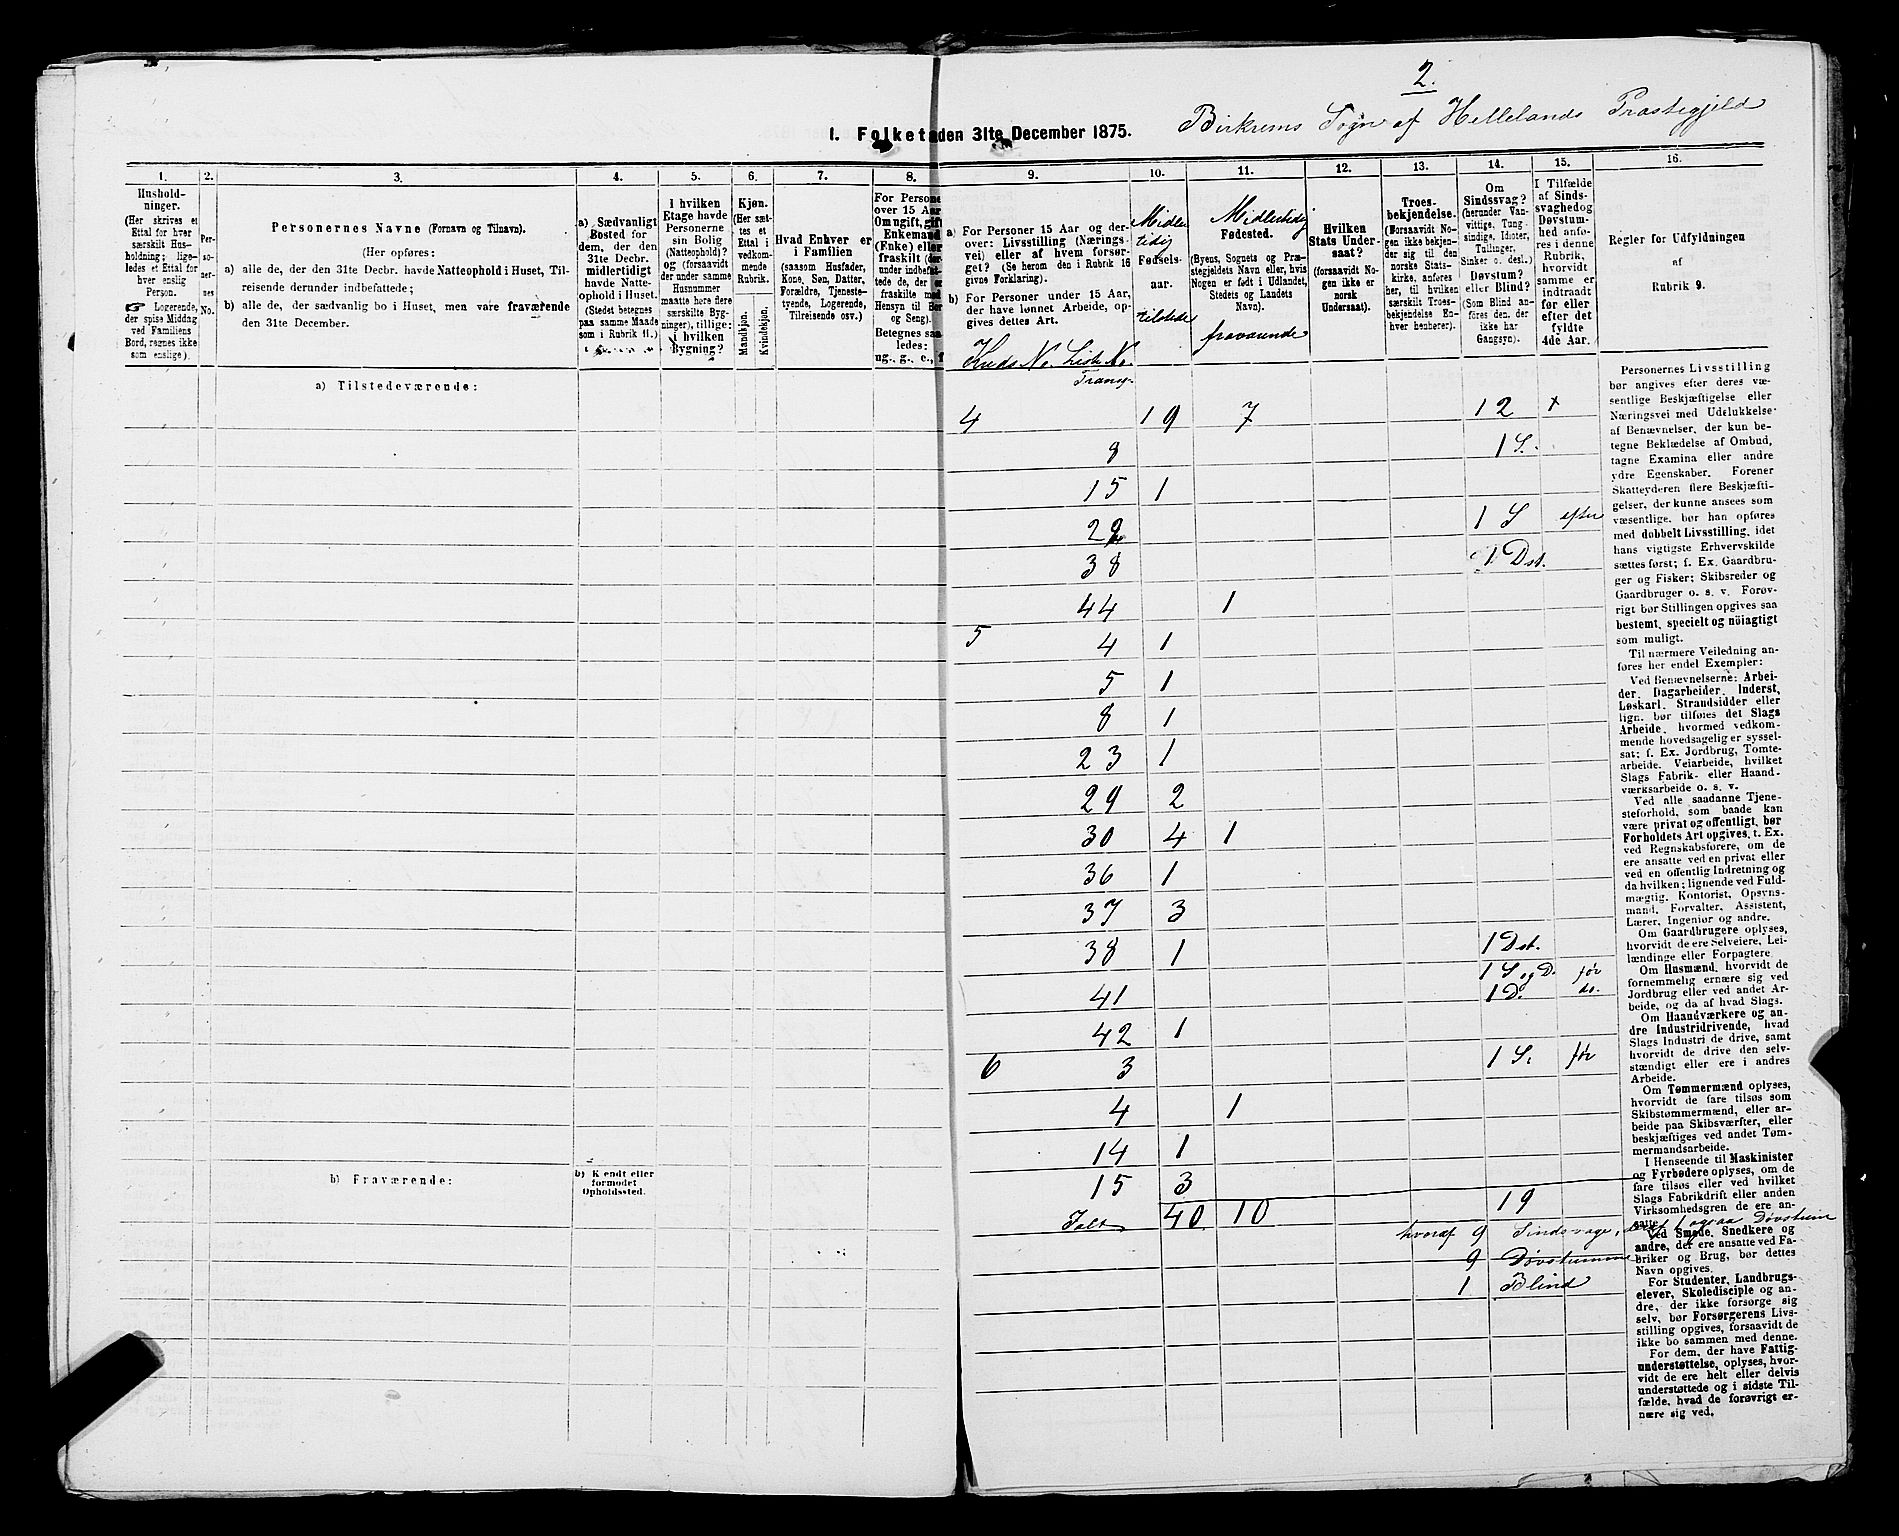 2.
Birkrems Sogn af Hellelands Præstegjeld
I. Folketa den 31te December 1875.
1. 2. 3. 4. 5. 6. 7. 8. 9. 10. 11. 12. 13. 14. 15. 16.
Hushold-
ninger.
(Her skrives et
Ettal for hver
særskilt Hus-
holdning; lige-
ledes et Ettal for
hver enslig
Person.
☞ Logerende,
der spise Middag
ved Familiens
Bord, regnes ikke
som enslige).
Per-
so-
ner-
nes
No.
Personernes Navne (Fornavn og Tilnavn).
(Her opføres:
a) alle de, der den 31te Decbr. havde Natteophold i Huset, Til-
reisende derunder indbefattede;
b) alle de, der sædvanlig bo i Huset, men vare fraværende
den 31te December.
a) Sædvanligt
Bosted for
dem, der den
31te Decbr.
midlertidigt
havde Natte-
ophold i Huset.
(Stedet betegnes
paa samme Maade
som i Rubrik 11.)
I hvilken
Etage havde
Personerne
sin Bolig
(Natteophold)?
og (forsaavidt
der under samme
Husnummer
maatte høre flere
særskilte Byg-
ninger), tillige:
i hvilken
Bygning?
Kjøn.
(Her sæt-
tes et
Ettal i
vedkom-
mende
Rubrik.)
Mandkjøn.
Kvindekjøn.
Hvad Enhver er
i Familien
(saasom Husfader,
Kone, Søn, Datter,
Forældre, Tjeneste-
tyende, Logerende,
Tilreisende osv.)
For Persone
over 15 Aar
Om ugift, gift
Enkemand
(Enke) eller
fraskilt (der-
under indbefat-
tede de, der ere
fraskilte med
Hensyn til Bor
og Seng).
Betegnes saa-
ledes:
ug., g., e., f
a) For Personer 15 Aar og der-
over: Livsstilling (Nærings-
vei) eller af hvem forsør-
get? (Se herom den i Rubrik 16
givne Forklaring).
b) For Personer under 15 Aar,
der have lønnet Arbeide, op-
gives dettes Art.
Kreds No. Liste No.
Midler
tidig
Fødsels-
aar.
tilstede
Midlertidig
Fødested.
(Byens, Sognets og Præ-
stegjeldets Navn, eller, hvis
Nogen er født i Udlandet,
Stedets og Landets
Navn).
fraværende
Hvilken
Stats Under-
saat?
(forsaavidt No-
gen ikke er
norsk
Undersaat).
Troes-
bekjendelse.
(Forsaavidt No-
gen ikke bekjen-
der sig til den
norske Stats-
kirke, anføres
her, til hvilken
særskilt Troes-
bekjendelse En-
hver henhører).
Om
Sindssvag?
(herunder Van-
vittige, Tung-
sindige, Idioter,
Tullinger,
Sinker o. desl.)
Døvstum?
eller Blind?
(Som Blind an-
føres den, der
ikke har
Gangsyn).
I Tilfælde
af Sinds-
svaghed og
Døvstum-
hed anfø-
res i denne
Rubrik,
hvorvidt
samme er
indtraadt
før eller
efter det
fyldte
4de Aar.
Regler for Udfyldningen
af
Rubrik 9.
a) Tilstedeværende:
Transp.
4 19 7 12 +
8 1 S.
15 1
29 1 S efter
38 1 Dst.
44 1
5 4 1
5 1
8 1
23 1
29 2
30 4 1
36 1
37 3
38 1 1 Dst.
41 1 S og D. før
1 D. do.
42 1
6 3 1 S. før
4 1
14 1
15 3
Ialt 40 10 19
hvoraf 9 Sindsvage, deraf 1 ogsaa Døvstum
9 Døvstumme
1 Blind
b) Fraværende:
b) Kjendt eller
formodet
Opholdssted.
Personernes Livsstilling
bør angives efter deres væ-
sentlige Beskjæftigelse eller
Næringsvei med Udelukkelse
af Benævnelser, der kun be-
tegne Beklædelse af Ombud,
tagne Examina eller andre
ydre Egenskaber. Forener
Skatteyderen flere Beskjæfti-
gelser, der kunne ansees som
væsentlige, bør han opføres
med dobbelt Livsstilling, idet
hans vigtigste Erhvervskilde
sættes først; f. Ex. Gaardbru-
ger og Fisker; Skibsreder og
Gaardbruger o. s. v. Forøv-
rigt bør Stillingen opgives saa
bestemt, specielt og nöiagtigt
som muligt.
Til nærmere Veiledning an-
føres her endel Exempler:
Ved Benævnelserne: Arbei-
der, Dagarbeider, Inderst,
Løskarl, Strandsidder eller
lign. bør tilføies det Slags
Arbeide, hvormed vedkom-
mende hovedsagelig er syssel-
sat; f. Ex. Jordbrug, Tomte-
arbeide, Veiarbeide, hvilket
Slags Fabrik- eller Haand-
værksarbeide o. s. v.
Ved alle saadanne Tjene-
steforhold, som baade kan
være privat og offentligt, bør
Forholdets Art opgives, t. Ex.
ved Regnskabsførere, om de
ere ansatte ved en privat eller
ved en offentlig Indretning og
da hvilken; lignende ved Fuld-
mægtig, Kontorist, Opsyns-
mand, Forvalter, Assistent,
Lærer, Ingeniør og andre.
Om Gaardbrugere oplyses,
hvorvidt de ere Selveiere, Lei-
lændinge eller Forpagtere.
Om Husmænd, hvorvidt de
fornemmelig ernære sig ved
Jordbrug eller ved andet Ar-
beide, og da af hvad Slags.
Om Haandværkere og an-
dre Industridrivende, hvad
Slags Industri de drive, samt
hvorvidt de drive den selv-
stændigt eller ere i andres
Arbeide.
Om Tømmermænd oplyses,
hvorvidt de fare tilsøs som
Skibstømmermænd, eller ar-
beide paa Skibsværfter, eller
beskjæftiges ved andet Tøm-
mermandsarbeide.
I Henseende til Maskinister
og Fyrbødere oplyses, om de
fare tilsøs eller ved hvilket
Slags Fabrikdrift eller anden
Virksomhedsgren de ere an-
satte.
Ved Smede, Snedkere og
andre, der ere ansatte ved Fa-
briker og Brug, bør dettes
Navn opgives.
For Studenter, Landbrugs-
elever, Skoledisciple og an-
dre, der ikke forsørge sig
selv, bør Forsørgerens Livs-
stilling opgives, forsaavidt de
ikke bo sammen med denne.
For dem, der have Fattig-
understøttelse, oplyses, hvor-
vidt de ere helt eller delvis
understøttede og i sidste Til-
fælde, hvad de forøvrigt er-
nære sig ved.